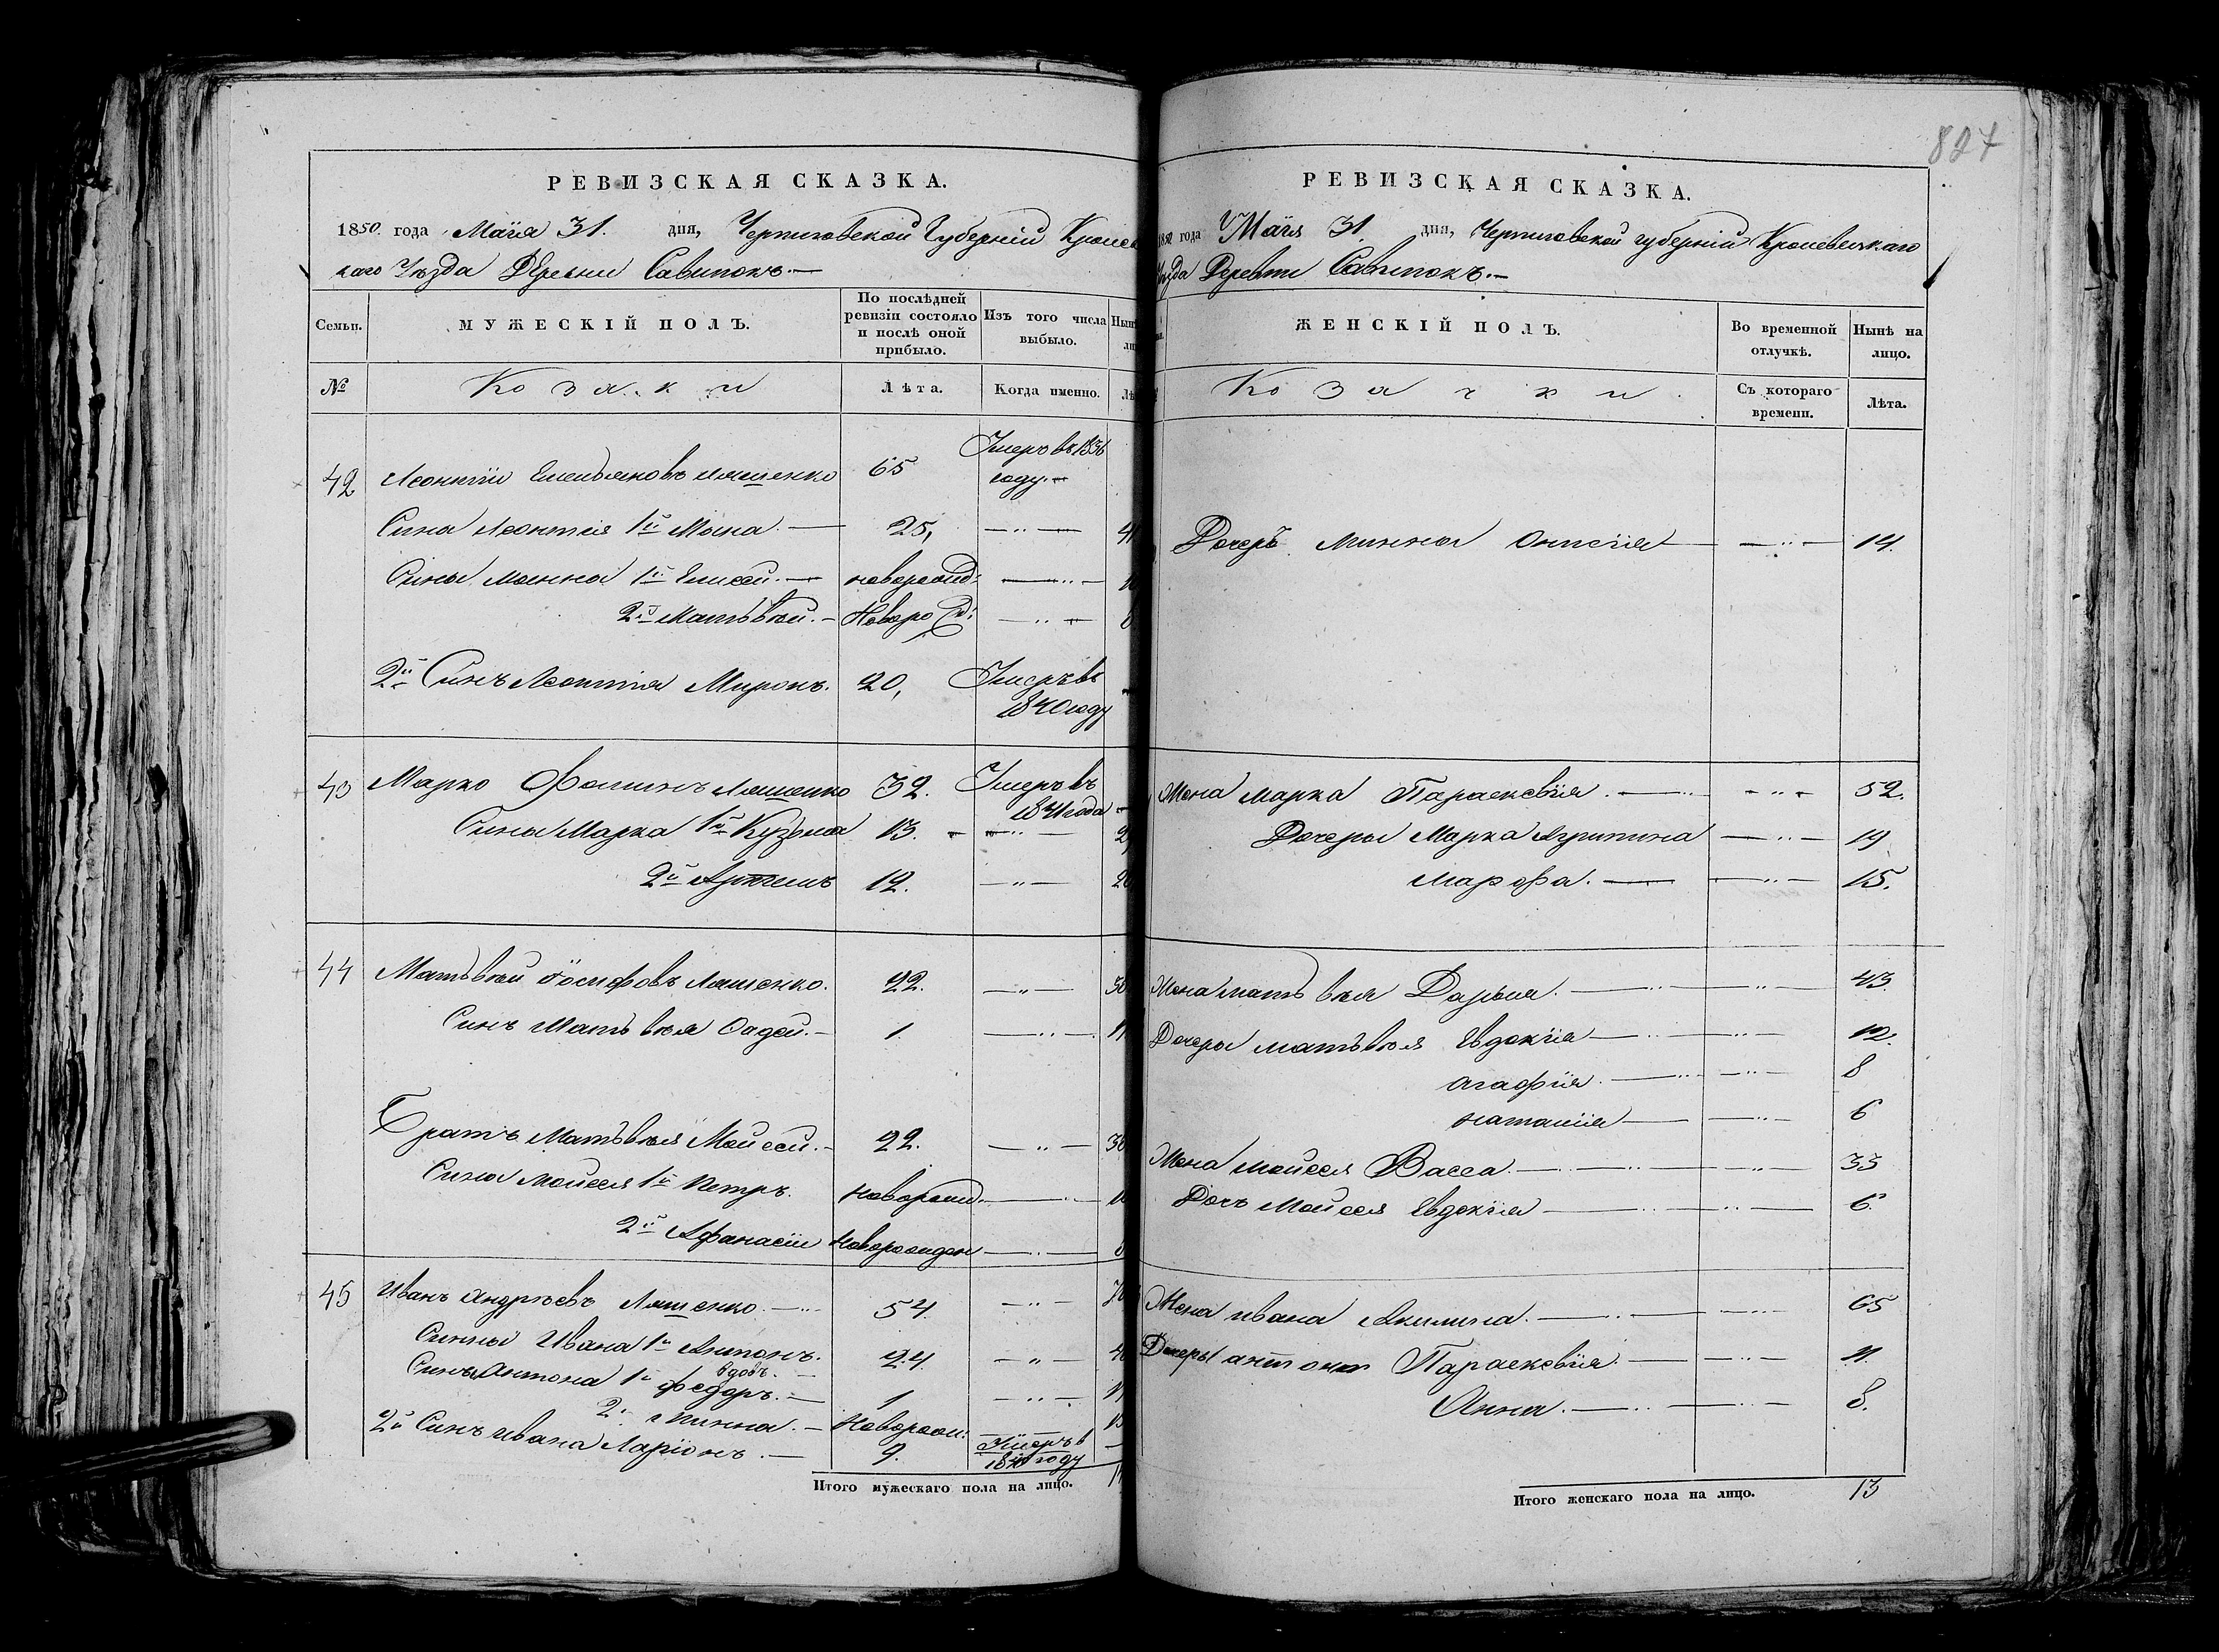 827
РЕВИЗСКАЯ СКАЗКА.
1850. года Маія 31. дня, Черниговской Губерніи Кролев
каго Уѣзда Деревни Савинокъ.—
Семьи. МУЖЕСКІЙ ПОЛЪ. По послѣдней ревизіи состояло и послѣ оной прибыло. Изъ того числа выбыло.
№ Козаки Лѣта. Когда именно.
42 Леонтій Емельяновъ Ляшенко 65 Умеръ въ 1836
году.—
Сина Леонтія 1й Мина.— 25, —„— 41
Сины Минны 1й Елисей.— новорожд: —„—
2й Матьвѣй.— Новорожд: —„— 8
2й Синъ Леонтія Миронъ. 20, Умеръ въ
1840 году
43 Марко Фоминъ Ляшенко 32. Умеръ въ
1841 года
Сины Марка 1й Кузьма 13. —„—
2й Артемъ 12. —„—
44 Матьвѣй Іосифовъ Ляшенко. 22. —„—
Синъ Матьвѣя Фадей.— 1. —„—
Братъ Матьвѣя Мойсей.— 22. —„—
Сины Мойсея 1й Петръ. Новорожд. —„—
2й Афанасій Новорожден —„— 8
45 Иванъ Андрѣевъ Ляшенко.— 54. —„— 70
Синны Ивана 1й Антонъ. 24 —„— 40
вдовъ.
Синъ Антона 1й федоръ.— 1 —„—
2. Минна.— Новорож: —„—
2й Синъ Ивана Ларіонъ.— 9. Умеръ в
1840 году
Итого мужескаго пола на лицо.
РЕВИЗСКАЯ СКАЗКА.
1850 года Маія 31 дня, Черниговской губерніи Кролевецкаго
Уѣзда Деревни Савинокъ.—
ЖЕНСКІЙ ПОЛЪ. Во временной отлучкѣ. Нынѣ на лицо.
Козачки. Съ котораго времени. Лѣта.
Дочеръ Минны Онисія —„— 14.
Жена Марка Параскевія.— —„— 52.
Дочеры Марка Агрипина —„— 19
Марфа.— —„— 15.
Жена Матьвѣя Дарья.— —„— 43.
Дочеры Матьвѣя Евдокія —„— 12.
Агафія.— —„— 8
Наталія —„— 6
Жена Мойсея Васса.— —„— 33
Дочъ Мойсея Евдокія —„— 6.
Жена Ивана Акилина.— —„— 65
Дочеры Антона Параскевія.— —„— 11.
Анна.— —„— 8.
Итого женскаго пола на лицо. 13